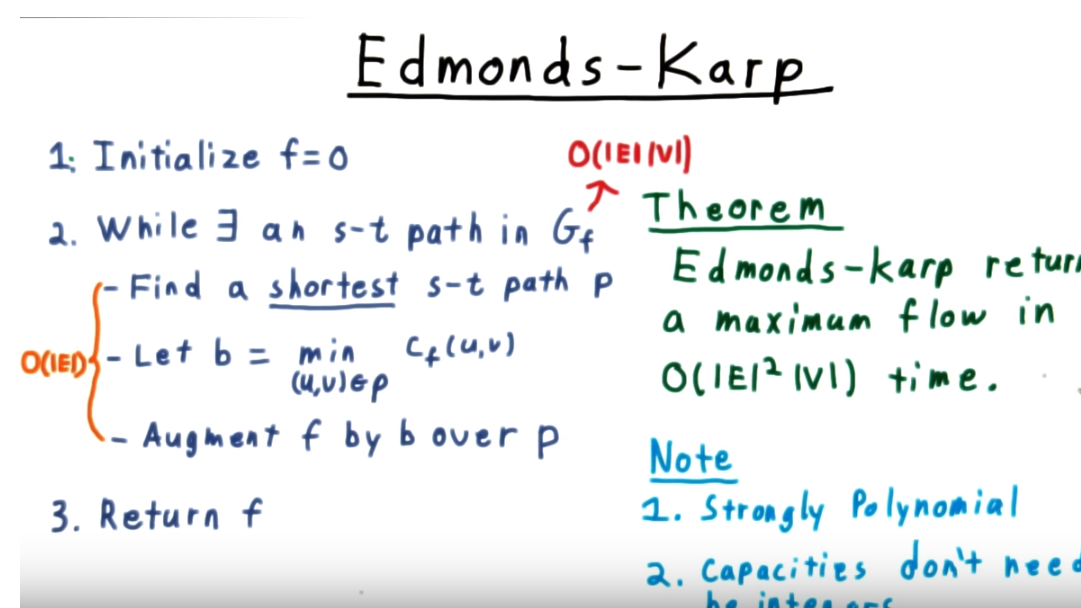 Edmonds-Karp
1. Initialize f=0
O(|E||V|)
2. While ∃ an s-t path in G_f
- Find a shortest s-t path p
O(|E|)
- Let b = min c_f(u,v)
(u,v)∈p
- Augment f by b over p
3. Return f
Theorem
Edmonds-karp return
a maximum flow in
O(|E|²|V|) time.
Note
1. Strongly Polynomial
2. Capacities don't need
be integers